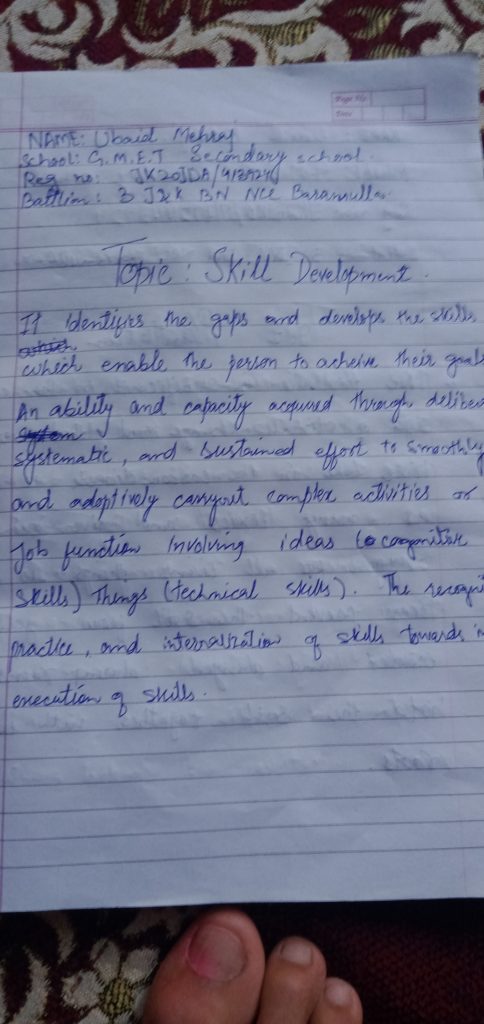 Page No
Date
NAME: Ubaid Mehraj
School: G.M.E.T Secondary school.
Reg no: JK20JDA/
Battlion: 3 J&K BN NCC Baramulla.
Topic: Skill Development.
It identifies the gaps and develops the skills
which enable the person to acheive their goals
An ability and capacity acquired through deliber
systematic, and sustained effort to smoothly
and adoptively carryout complex activities or
Job function involving ideas (cognitive
skills) Things (technical skills). The recogni
practice, and internalization of skills towards
execution of skills.